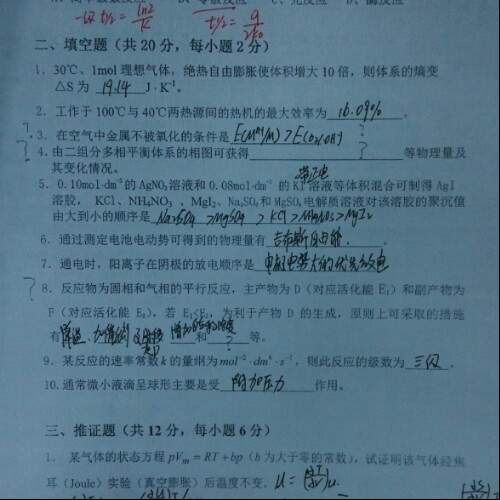 t½ = ln2/k
t½ = a/2k0
二、填空题（共 20 分，每小题 2 分）
1．30℃、1mol 理想气体，绝热自由膨胀使体积增大 10 倍，则体系的熵变
△S 为 19.14 J·K⁻¹。
2．工作于 100℃与 40℃两热源间的热机的最大效率为 16.09% 。
? 3．在空气中金属不被氧化的条件是 E(Mⁿ⁺/M) > E(O₂/OH⁻)
? 4．由二组分多相平衡体系的相图可获得 ? 等物理量及
其变化情况。
带正电
5．0.10mol·dm⁻³的 AgNO₃溶液和 0.08mol·dm⁻³ 的 KI 溶液等体积混合可制得 AgI
溶胶， KCl、NH₄NO₃ 、MgI₂、Na₂SO₄和 MgSO₄电解质溶液对该溶胶的聚沉值
由大到小的顺序是 Na₂SO₄ > MgSO₄ > KCl > NH₄NO₃ > MgI₂
6．通过测定电池电动势可得到的物理量有 吉布斯自由能 。
7．通电时，阳离子在阴极的放电顺序是 电极电势大的优先放电
? 8．反应物为固相和气相的平行反应，主产物为 D（对应活化能 E₁）和副产物为
F（对应活化能 E₂），若 E₁≤E₂，为利于产物 D 的生成，原则上可采取的措施
有 和 ? 等。
9．某反应的速率常数 k 的量纲为 mol⁻²·dm⁶·s⁻¹，则此反应的级数为 三级 .
10．通常微小液滴呈球形主要是受 附加压力 作用。
三、推证题（共 12 分，每小题 6 分）
1．某气体的状态方程 pVₘ = RT + bp（b 为大于零的常数），试证明该气体经焦
耳（Joule）实验（真空膨胀）后温度不变.